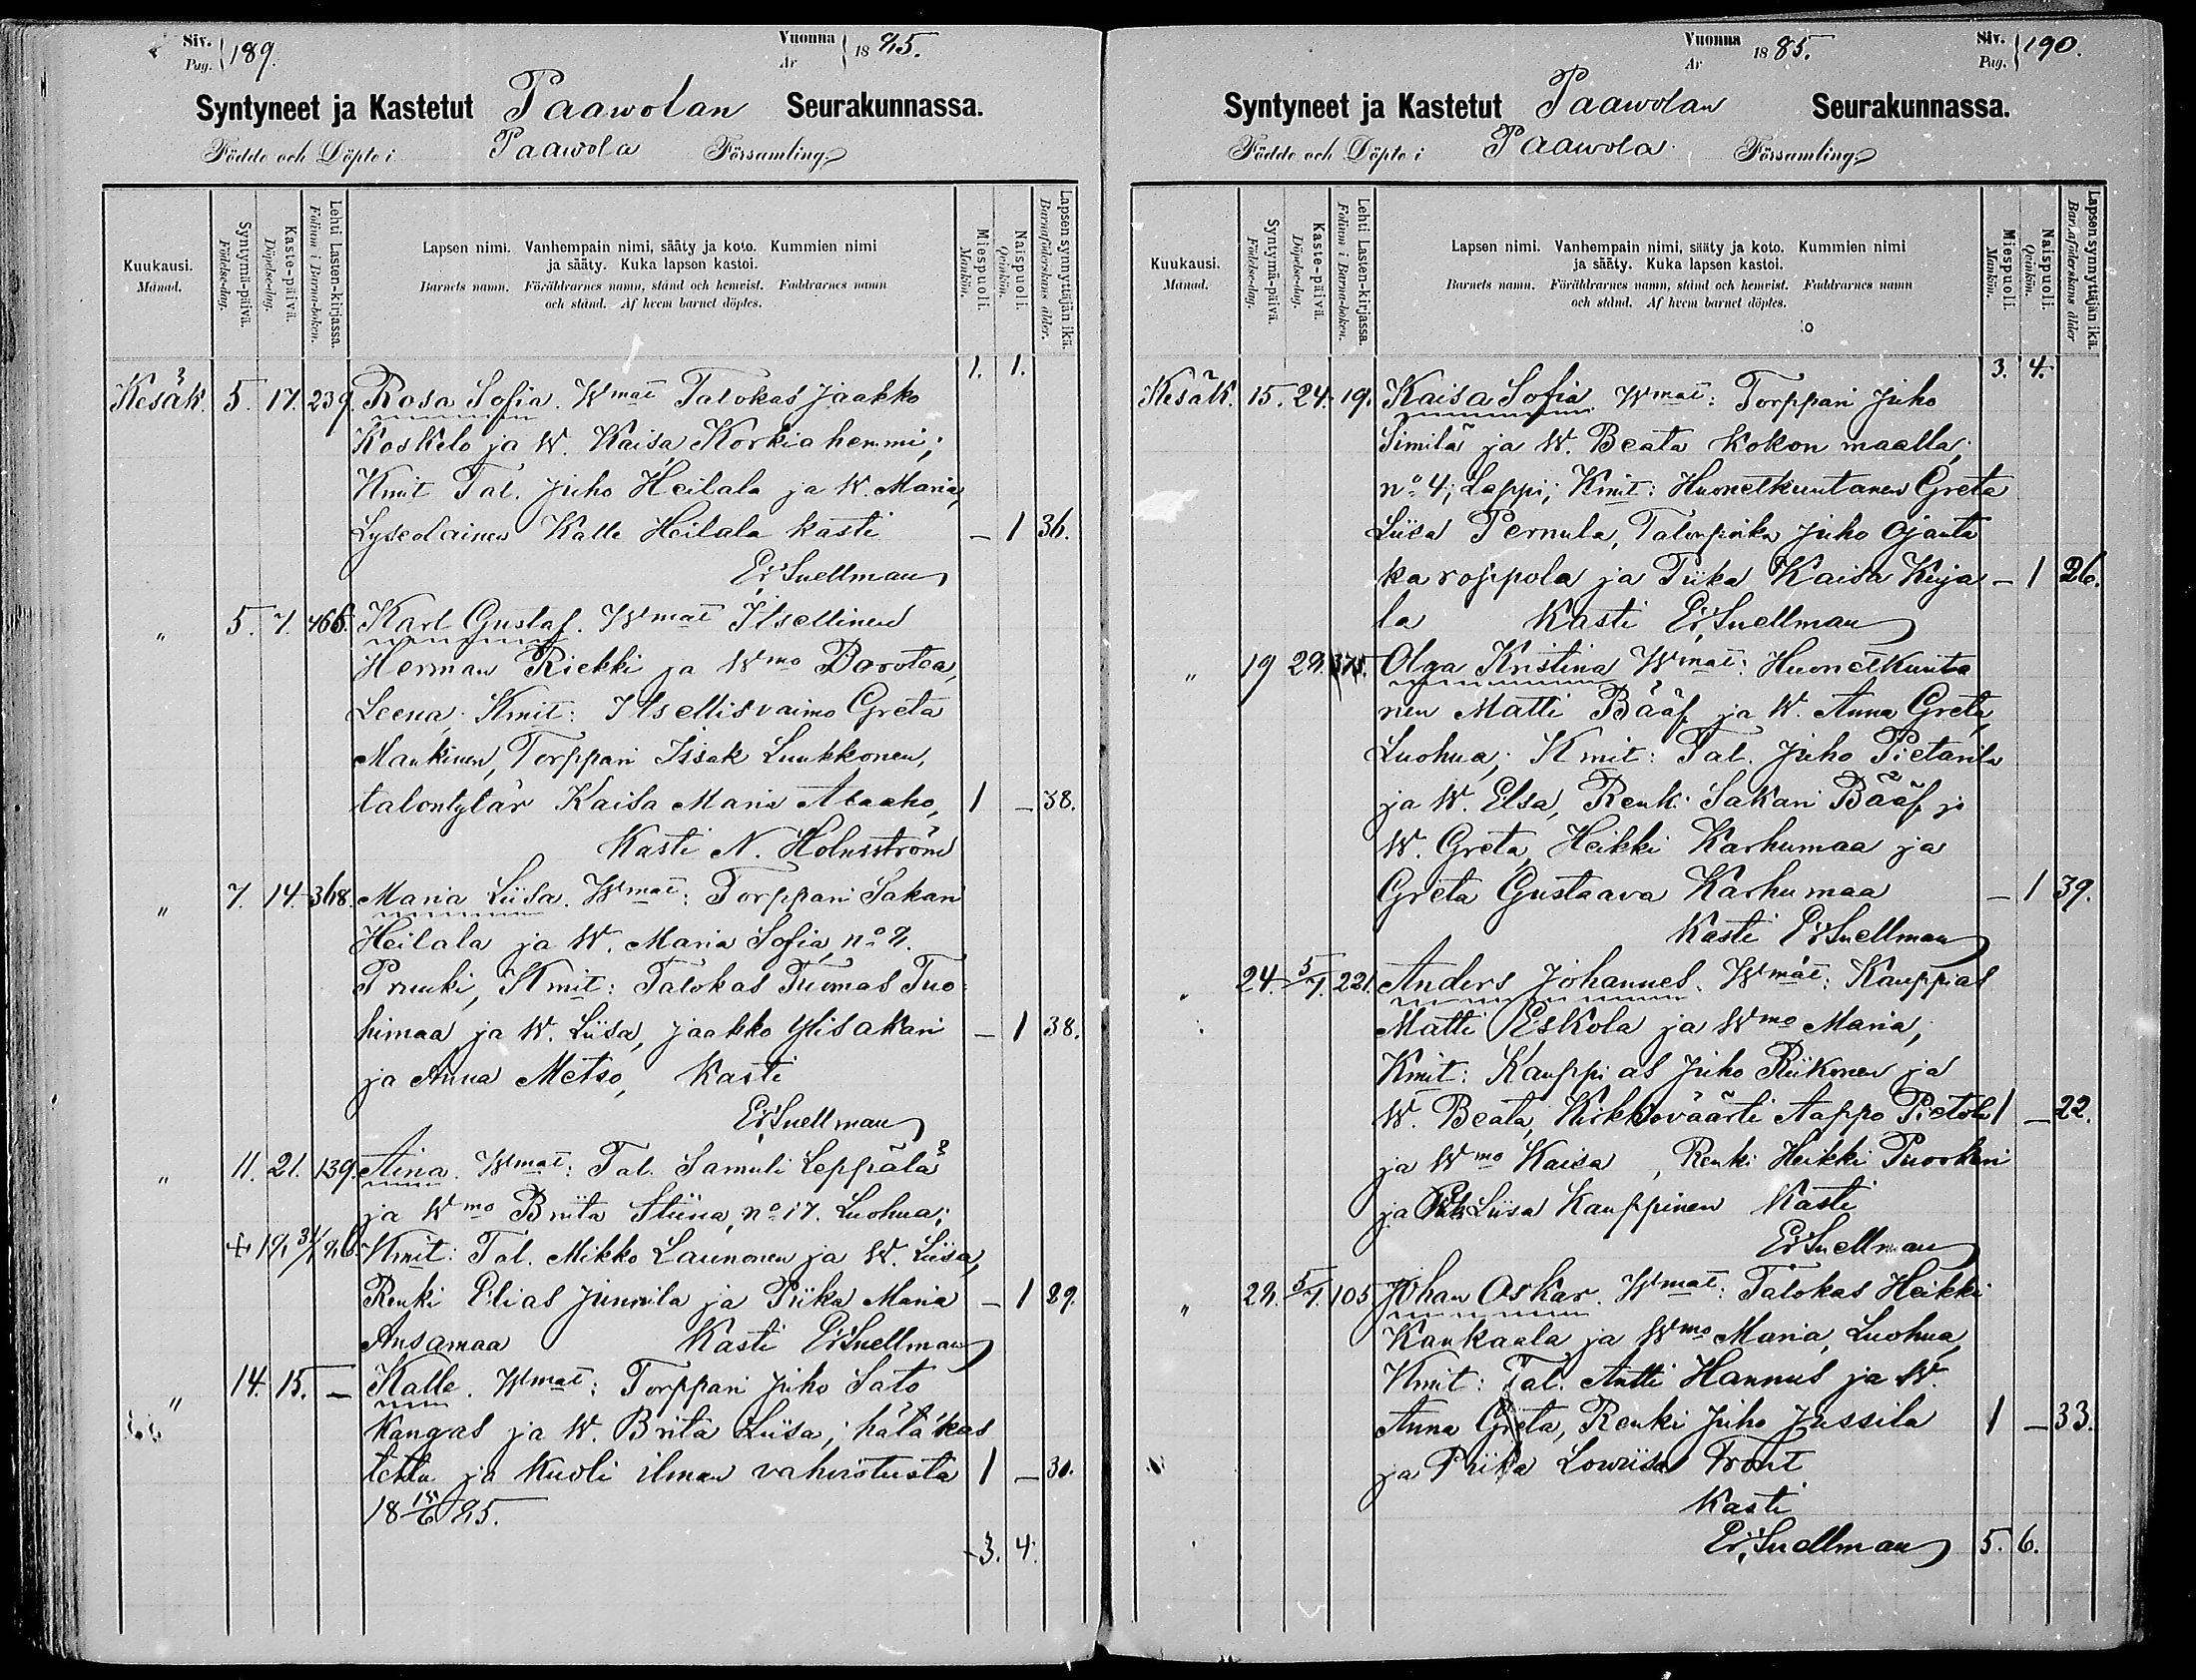 Siv. 189.
Pag.
Vuonna 1885.
År
Syntyneet ja Kastetut Paawolan Seurakunnassa.
Födde och Döpte i Paawola Församling
Kuukausi.
Månad.
Syntymä-päivä.
Födelse-dag.
Kaste-päivä.
Döpelse-dag.
Lehti Lasten-kirjassa.
Folium i Barna-boken.
Lapsen nimi. Vanhempain nimi, sääty ja koto. Kummien nimi
ja sääty. Kuka lapsen kastoi.
Barnets namn. Föräldrarnes namn, stånd och hemvist. Faddrarnes namn
och stånd. Af hvem barnet döptes.
Miespuoli.
Mankön.
Naispuoli.
Qvinkön.
Lapsen synnyttäjän ikä.
Barnaföderskans ålder.
1. 1.
Kesäk. 5. 17. 239. Rosa Sofia. Wmat Talokas Jaakko
Koskelo ja W. Kaisa Korkiahenmi;
Kmit Tal. Juho Heilala ja W. Maria,
Lyseolainen Kalle Heilala kasti — 1 36.
Er. Snellman
" 5. 7. 466. Karl Gustaf. Wmat Itsellinen
Herman Riekki ja Wmo Dorotea,
Leena; Kmit: Itsellisvaimo Greta
Mankinen, Torppari Issak Luukkonen,
talontytär Kaisa Maria Alaaho, 1 — 38.
Kasti N. Holmström
" 7. 14. 368. Maria Liisa. Wmat: Torppari Sakari
Heilala ja W. Maria Sofia, no 8.
Pruuki, Kmit: Talokas Tuomas Tuo-
himaa ja W. Liisa, Jaakko Ylisakari — 1 38.
ja Anna Metso, Kasti
Er. Snellman
" 11. 21. 139. Aina. Wmat: Tal. Samuli Leppälä
ja Wmo Briita Stiina, no 17. Luohua;
Kmit: Tal. Mikko Launonen ja W. Liisa,
Renki Elias Junnila ja Piika Maria — 1 29.
Ansamaa Kasti Er Snellman
" 14. 15. — Kalle. Wmat: Torppari Juho Sato
kangas ja W. Brita Liisa; hätäkas
tettu ja kuoli ilman vahvistusta 1 — 30.
18 15/6 85.
3. 4.
Vuonna 1885.
År
Siv. 190.
Pag.
Syntyneet ja Kastetut Paawolan Seurakunnassa.
Födde och Döpte i Paawola Församling
Kuukausi.
Månad.
Syntymä-päivä.
Födelse-dag.
Kaste-päivä.
Döpelse-dag.
Lehti Lasten-kirjassa.
Folium i Barna-boken.
Lapsen nimi. Vanhempain nimi, sääty ja koto. Kummien nimi
ja sääty. Kuka lapsen kastoi.
Barnets namn. Föräldrarnes namn, stånd och hemvist. Faddrarnes namn
och stånd. Af hvem barnet döptes.
Miespuoli.
Mankön.
Naispuoli.
Qvinkön.
Lapsen synnyttäjän ikä.
Barnaföderskans ålder
3. 4.
Kesäk. 15. 24. 19. Kaisa Sofia. Wmat: Torppari Juho
Similä ja W. Beata Kokon maalla,
no 4; Lappi; Kmit: Huonetkuntanen Greta
Liisa Pernula, Talonpoika Juho Ojanta
ka roppola ja Piika Kaisa Kuja — 1 26.
la Kasti Er, Snellman
" 19 28. 375. Olga Kristina Wmat: Huonetkunta
nen Matti Bååf ja W. Anna Greta,
Luohua; Kmit: Tal. Juho Pietarila
ja W. Elsa, Renki Sakari Bååf ja
W. Greta, Heikki Karhumaa ja
Greta Gustaava Karhumaa — 1 39.
Kasti Er Snellman
" 24. 5/7. 221. Anders Johannes. Wmat: Kauppias
Matti Eskola ja Wmo Maria;
Kmit: Kauppias Juho Riikonen ja
W. Beata, Kirkkoväärti Aappo Pietola 1 — 22.
ja Wmo Kaisa, Renki Heikki Puoskari
ja Liisa Kauppinen Kasti
Er Snellman
" 28. 5/7. 105 Johan Oskar. Wmat: Talokas Heikki
Kankaala ja Wmo Maria, Luohua,
Kmit: Tal. Antti Hannus ja W.
Anna Greta, Renki Juho Jussila 1 — 33.
ja Piika Lowiisa Front
Kasti
Er, Snellman 5. 6.